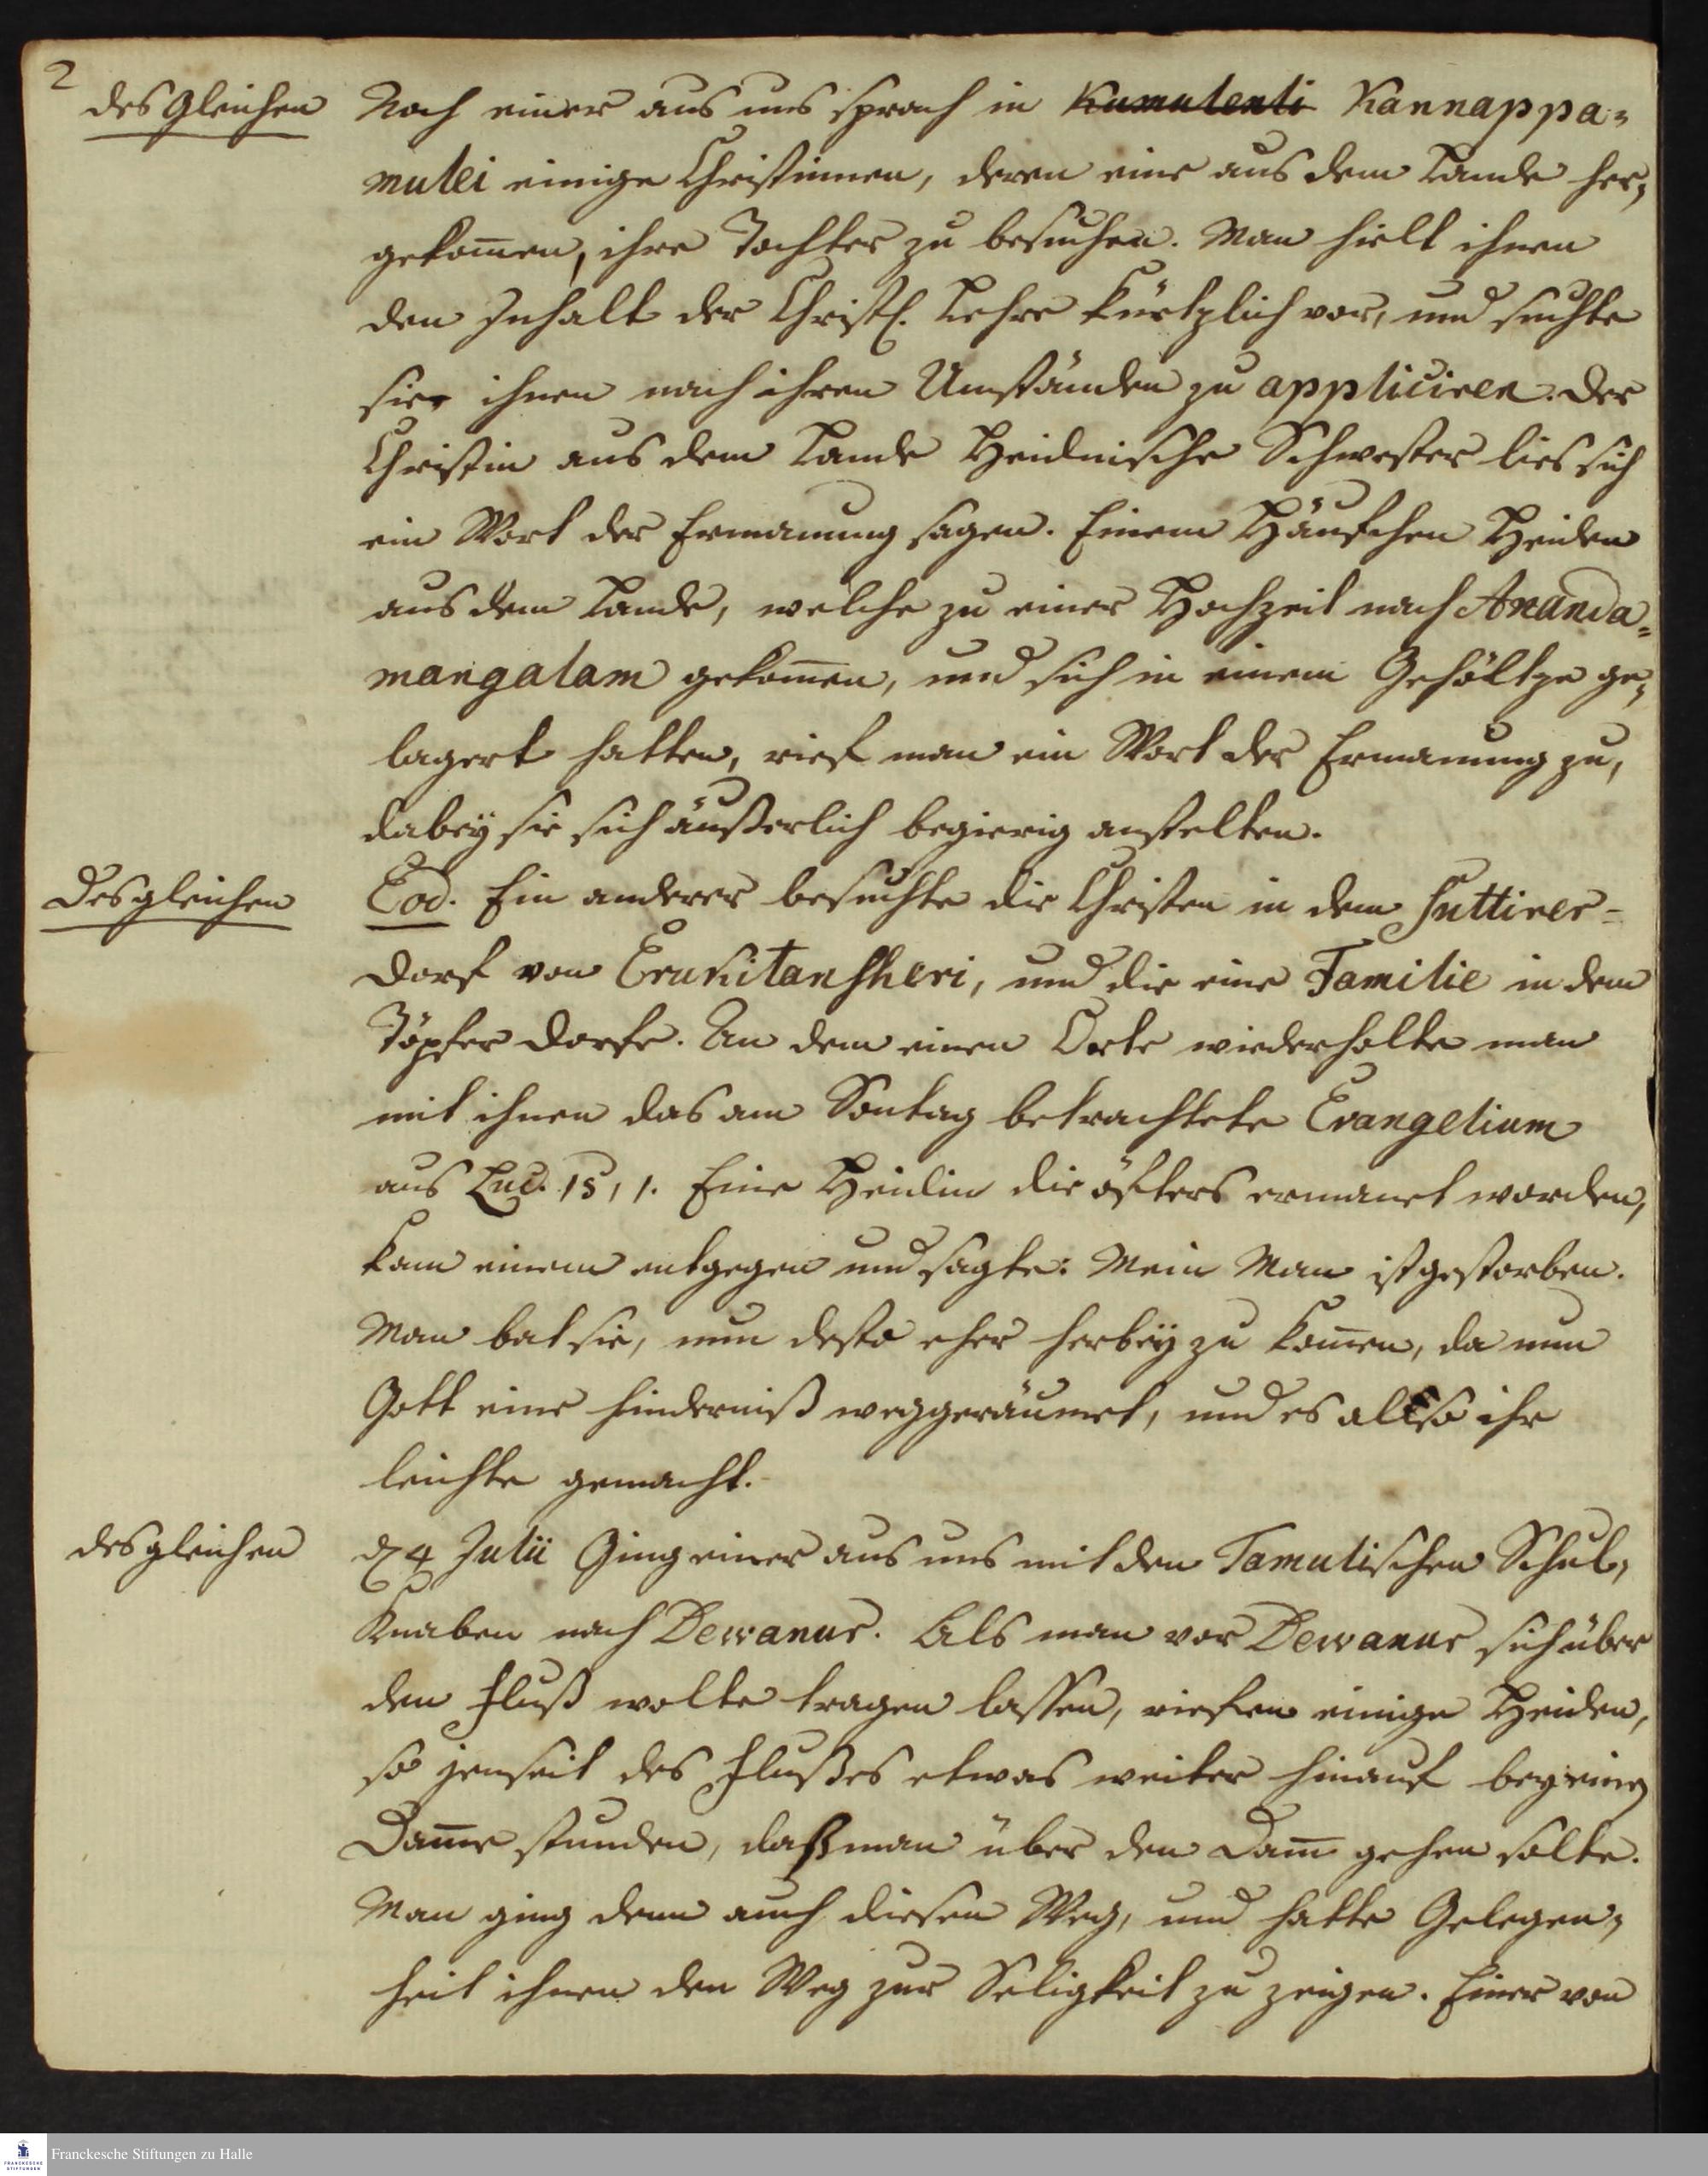 2
desgleichen
Noch einer aus uns sprach in Kumulenti Kannappa-
mulei einige Christinnen, deren eine aus dem Lande her-
gekom̄en, ihre Tochter zu besuchen. Man hielt ihnen
den Inhalt der Christl. Lehre kürtzlich vor, und suchte
sie ihnen nach ihren Umständen zu appliciren. Der
Christin aus dem Lande Heidnische Schwester lies sich
ein Wort der Ermanung sagen. Einem Häufchen Heiden
aus dem Lande, welche zu einer Hochzeit nach Ananda-
mangalam gekom̄en, und sich in einem Gehöltze ge-
lagert hatten, rief man ein Wort der Ermanung zu,
dabey sie sich äußerlich begierig anstelten.
Desgleichen
Eod. Ein anderer besuchte die Christen in dem Suttirer-
Dorf von Erukitansheri, und die eine Familie in dem
Töpfer Dorfe. An dem einen Orte wiederholte man
mit ihnen das am Sontag betrachtete Evangelium
aus Luc. 15, 1. Eine Heidin die öfters ermanet worden,
kam einem entgegen und sagte: Mein Man ist gestorben.
Man bat sie, nun desto eher herbey zu kom̄en, da nun
Gott eine Hinderniß weggeräumet, und es also ihr
leichte gemacht.
desgleichen
d. 4 Julii Ging einer aus uns mit den Tamulischen Schul-
Knaben nach Dewanur. Als man vor Dewanur sich über
den Fluß wolte tragen lassen, riefen einige Heiden,
so jenseit des Flußes etwas weiter hinauf bey einem
Dam̄e stunden, daß man über den Dam̄ gehen solte.
Man ging denn auch diesen Weg, und hatte Gelegen-
heit ihnen den Weg zur Seligkeit zu zeigen. Einer von
FRANCKESCHE
STIFTUNGEN
Franckesche Stiftungen zu Halle